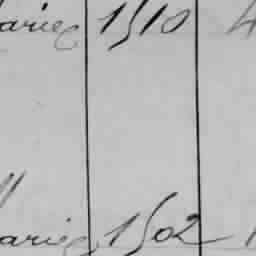 arie 1510 4
"
arie 1502